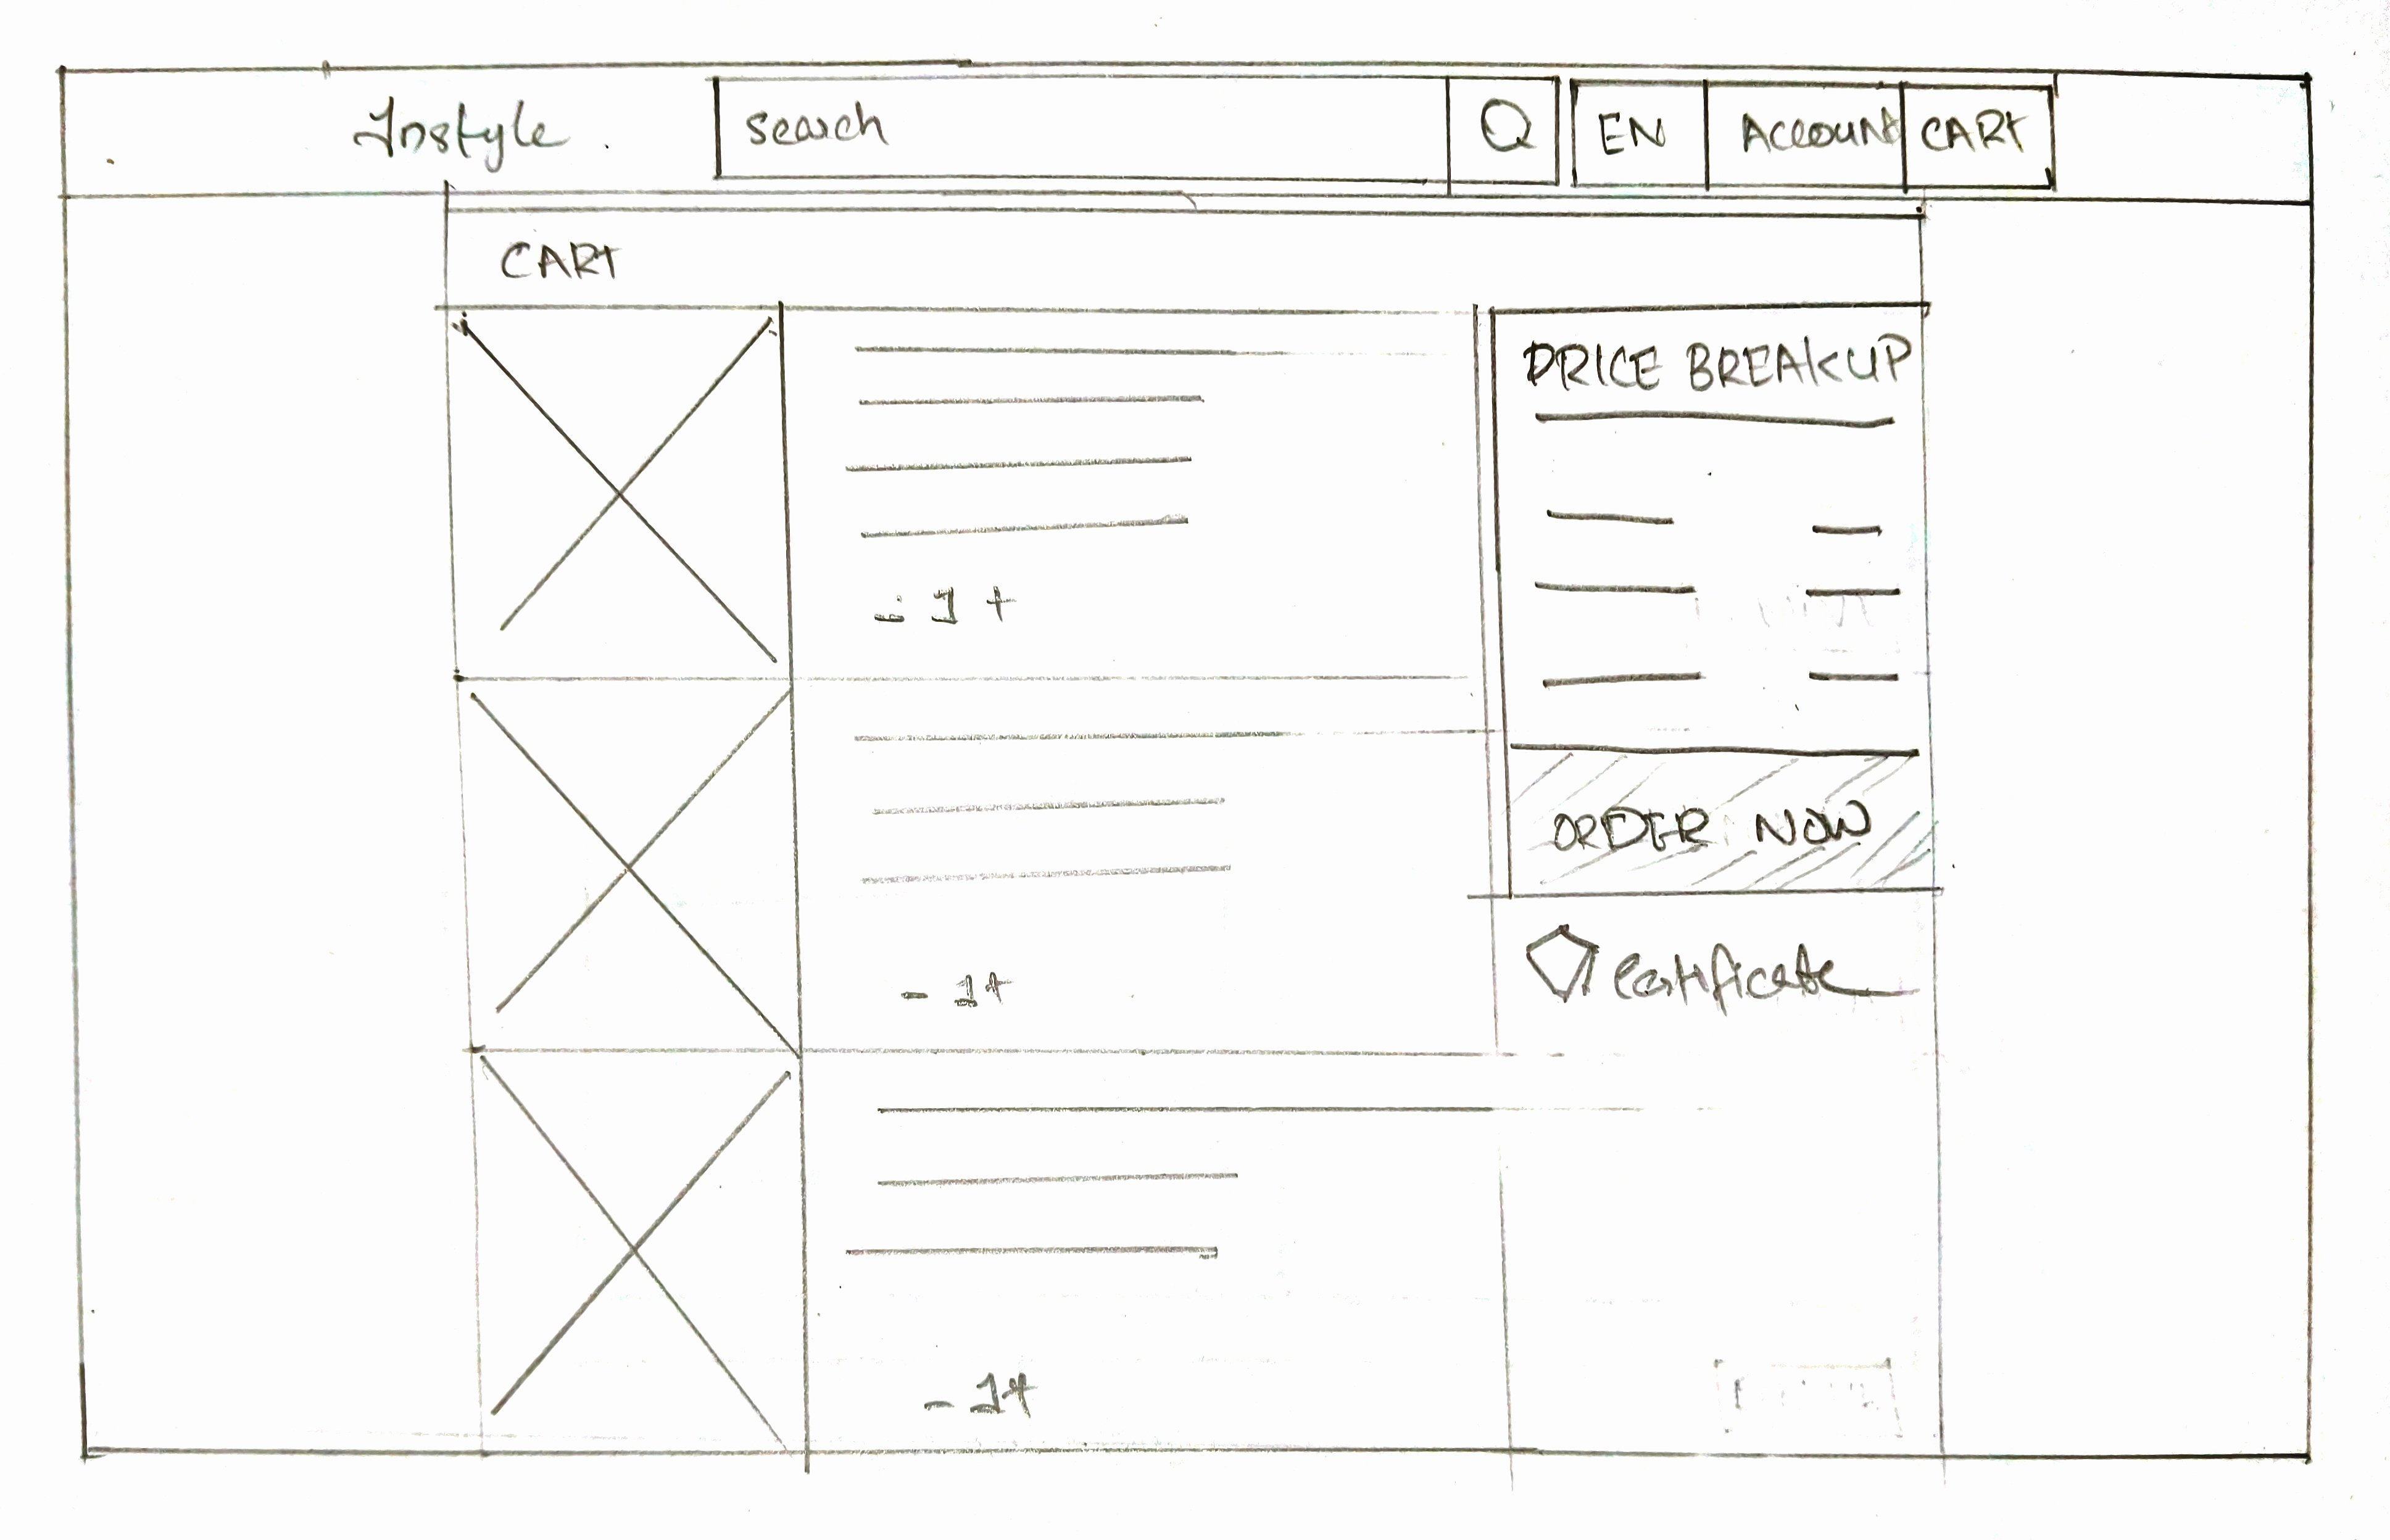 Instyle
search
EN
Account
CART
CART
PRICE BREAKUP
- 1 +
ORDER NOW
- 1+
certificate
- 1+